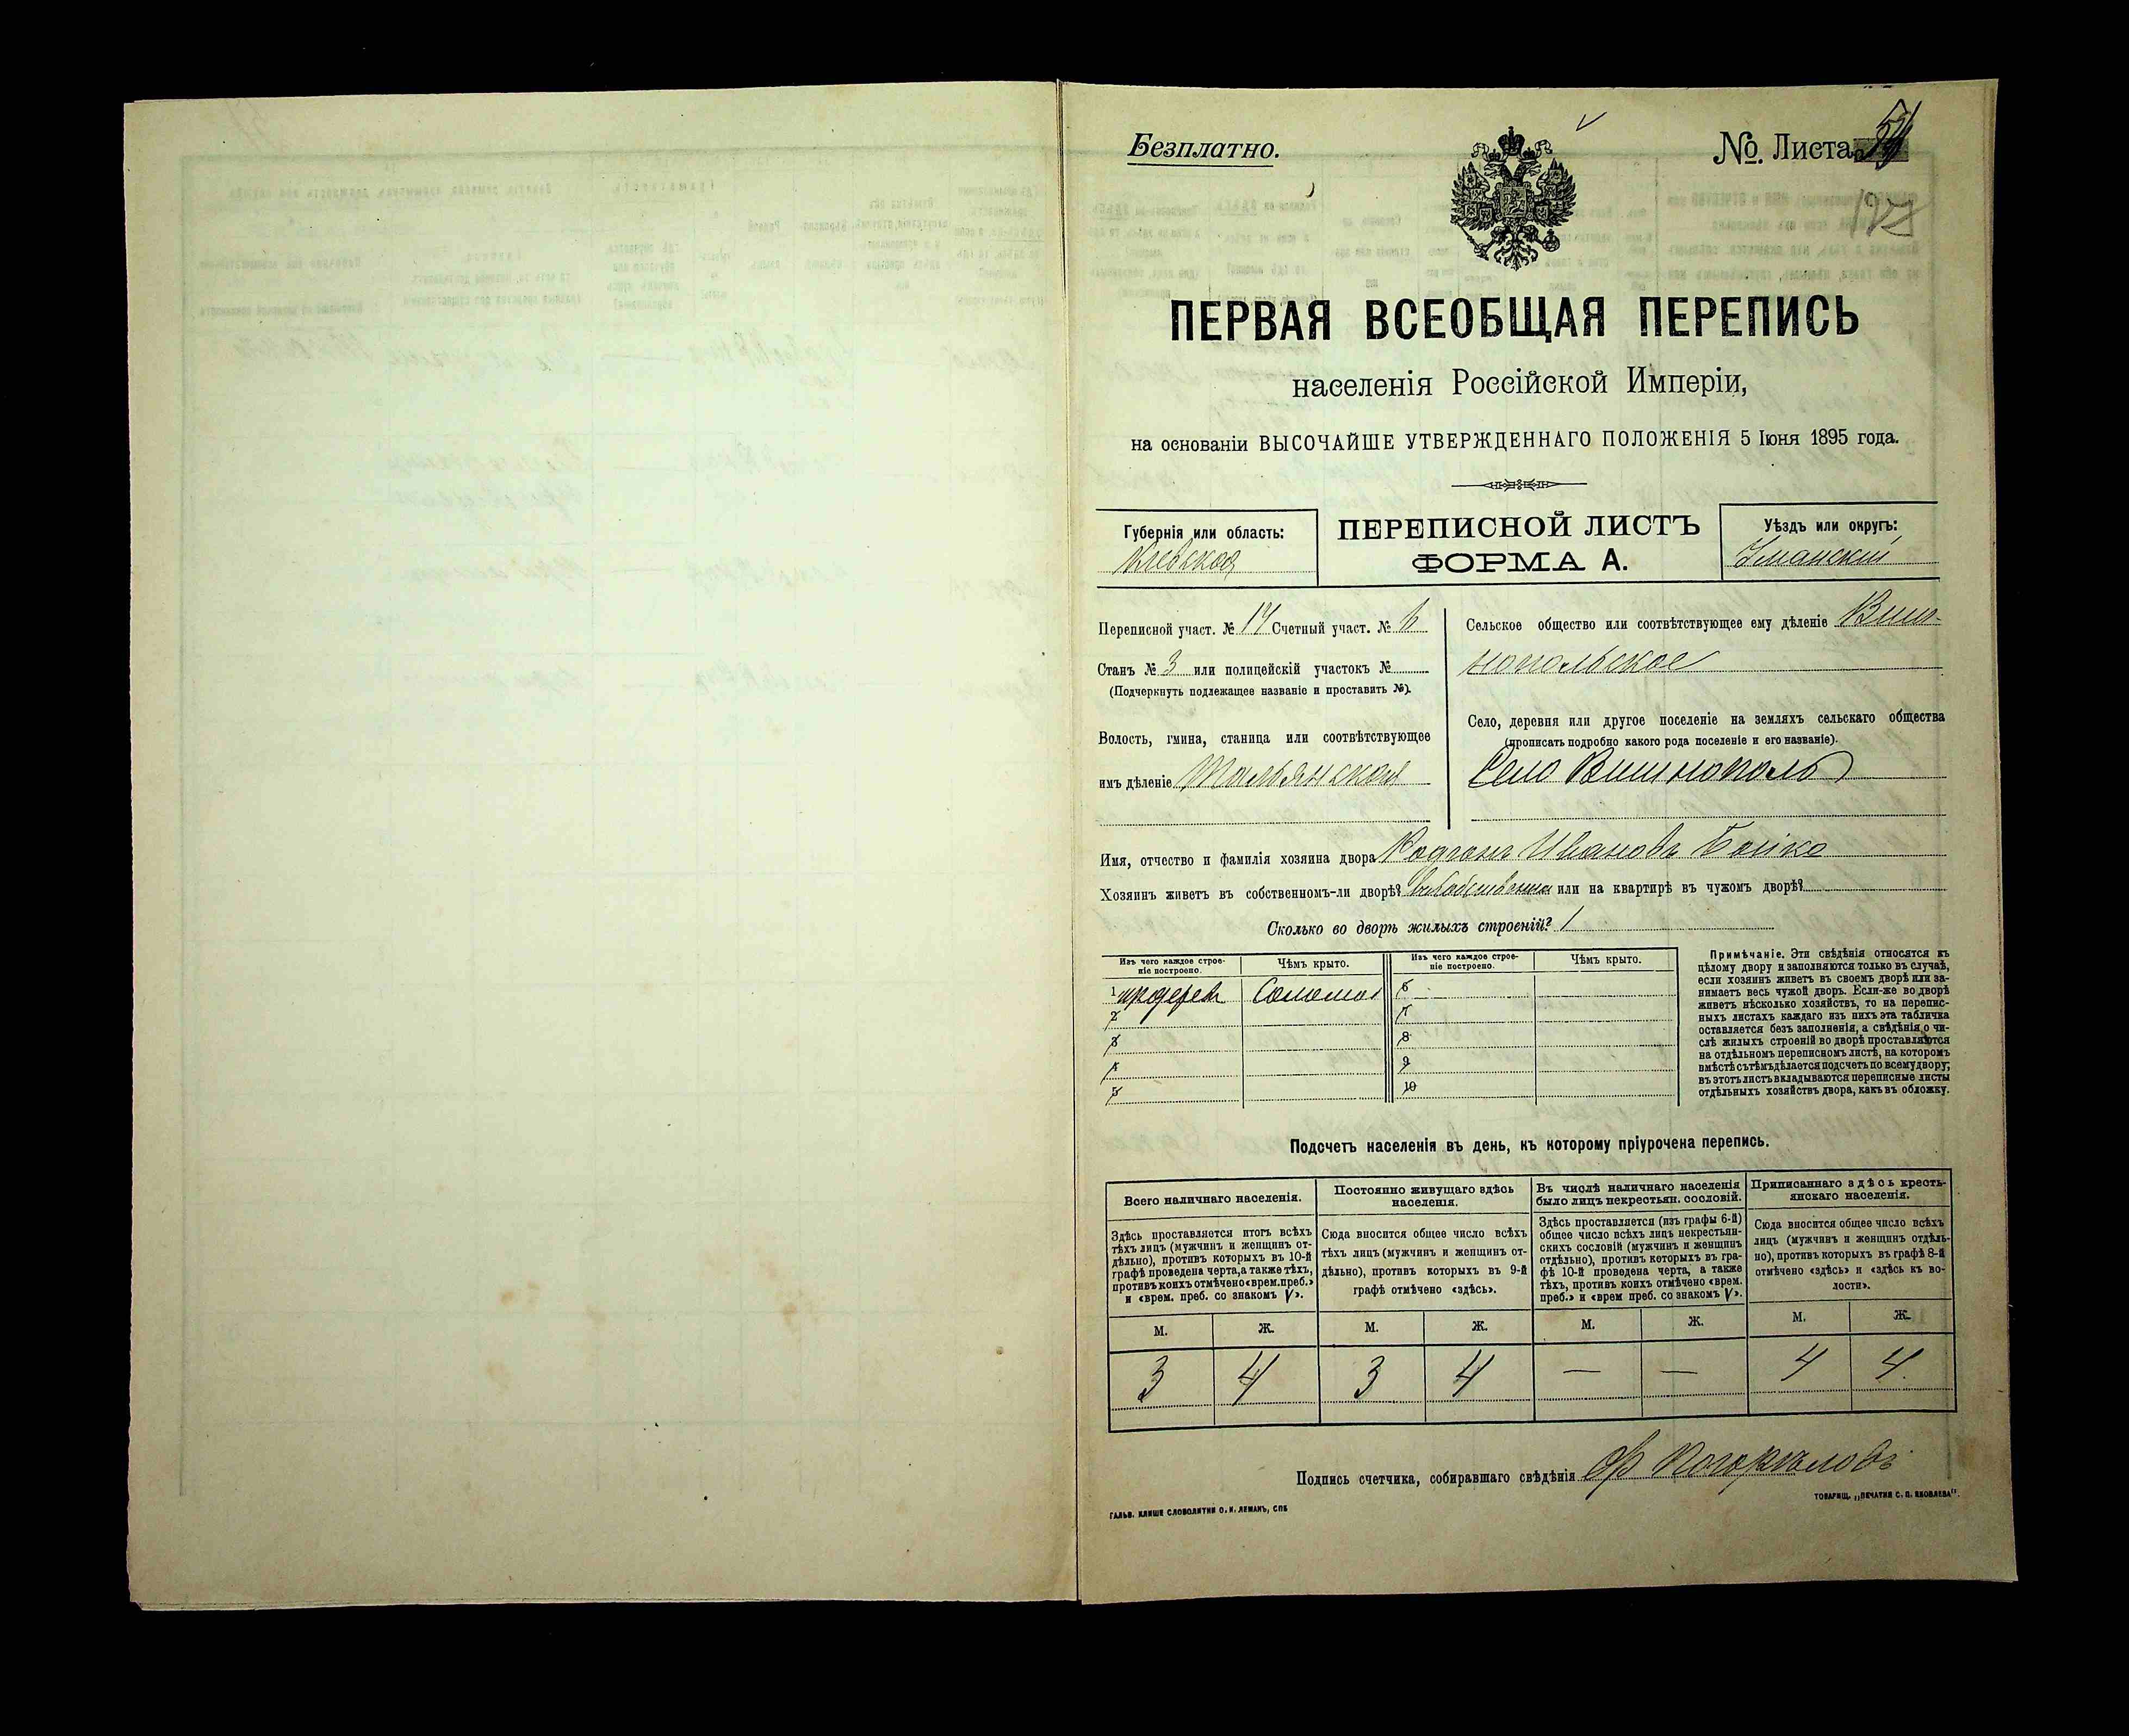 Безплатно.
№ Листа
ПЕРВАЯ ВСЕОБЩАЯ ПЕРЕПИСЬ
населенія Россійской Имперіи,
на основаніи ВЫСОЧАЙШЕ УТВЕРЖДЕННАГО ПОЛОЖЕНІЯ 5 Іюня 1895 года.
Губернія или область:
Кіевская
ПЕРЕПИСНОЙ ЛИСТЪ
ФОРМА А.
Уѣздъ или округъ:
Уманскій
Переписной участ. № 14 Счетный участ. № 6
Станъ № 3 или полицейскій участокъ №
(Подчеркнуть подлежащее названіе и проставить №).
Волость, гмина, станица или соотвѣтствующее
имъ дѣленіе Тальянская
Сельское общество или соотвѣтствующее ему дѣленіе Виш-
нопольское
Село, деревня или другое поселеніе на земляхъ сельскаго общества
(прописать подробно какого рода поселеніе и его названіе).
Село Вишнополь
Имя, отчество и фамилія хозяина двора Родіонъ Ивановъ Бойко
Хозяинъ живетъ въ собственномъ-ли дворѣ? или на квартирѣ въ чужомъ дворѣ?
Сколько во дворѣ жилыхъ строеній? 1
Изъ чего каждое строе-
ніе построено.
Чѣмъ крыто.
Изъ чего каждое строе-
ніе построено.
Чѣмъ крыто.
1 Соломой
2
3
4
5
6
7
8
9
10
Примѣчаніе. Эти свѣдѣнія относятся къ
цѣлому двору и заполняются только въ случаѣ,
если хозяинъ живетъ въ своемъ дворѣ или за-
нимаетъ весь чужой дворъ. Если-же во дворѣ
живетъ нѣсколько хозяйствъ, то на перепис-
ныхъ листахъ каждаго изъ нихъ эта табличка
оставляется безъ заполненія, а свѣдѣнія о чи-
слѣ жилыхъ строеній во дворѣ проставляются
на отдѣльномъ переписномъ листѣ, на которомъ
вмѣстѣ съ тѣмъ дѣлается подсчетъ по всему двору;
въ этотъ листъ вкладываются переписные листы
отдѣльныхъ хозяйствъ двора, какъ въ обложку.
Подсчетъ населенія въ день, къ которому пріурочена перепись.
Всего наличнаго населенія.
Здѣсь проставляется итогъ всѣхъ
тѣхъ лицъ (мужчинъ и женщинъ от-
дѣльно), противъ которыхъ въ 10-й
графѣ проведена черта, а также тѣхъ,
противъ коихъ отмѣчено «врем. преб.»
и «врем. преб. со знакомъ V».
Постоянно живущаго здѣсь
населенія.
Сюда вносится общее число всѣхъ
тѣхъ лицъ (мужчинъ и женщинъ от-
дѣльно), противъ которыхъ въ 9-й
графѣ отмѣчено «здѣсь».
Въ числѣ наличнаго населенія
было лицъ некрестьян. сословій.
Здѣсь проставляется (изъ графы 6-й)
общее число всѣхъ лицъ некрестьян-
скихъ сословій (мужчинъ и женщинъ
отдѣльно), противъ которыхъ въ гра-
фѣ 10-й проведена черта, а также
тѣхъ, противъ коихъ отмѣчено «врем.
преб.» и «врем преб. со знакомъ V».
Приписаннаго здѣсь кресть-
янскаго населенія.
Сюда вносится общее число всѣхъ
лицъ (мужчинъ и женщинъ отдѣль-
но), противъ которыхъ въ графѣ 8-й
отмѣчено «здѣсь» и «здѣсь къ во-
лости».
М. Ж. М. Ж. М. Ж. М. Ж.
3 4 3 4 — — 4 4
Подпись счетчика, собиравшаго свѣдѣнія
ГАЛЬВ. КЛИШЕ СЛОВОЛИТНИ О. И. ЛЕМАНЪ, СПБ
ТОВАРИЩ. „ПЕЧАТНЯ С. П. ЯКОВЛЕВА".